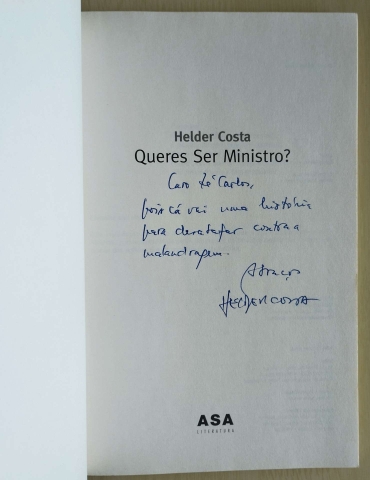 Helder Costa
Queres Ser Ministro?
Caro Zé Carlos,
pois cá vai uma história
para desatafar contra a
malandragem.
Abraços
HELDER COSTA
ASA
LITERATURA